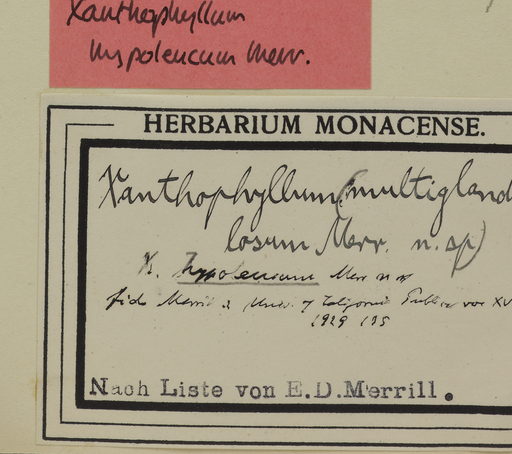 Xanthophyllum
hypoleucum Merr.
HERBARIUM MONACENSE.
Xanthophyllum (multigland
losum Merr. n. sp)
X. hypoleucum Merr n
fide Merrill Univ. of California Public. vol XV
1929 135
Nach Liste von E.D.Merrill.